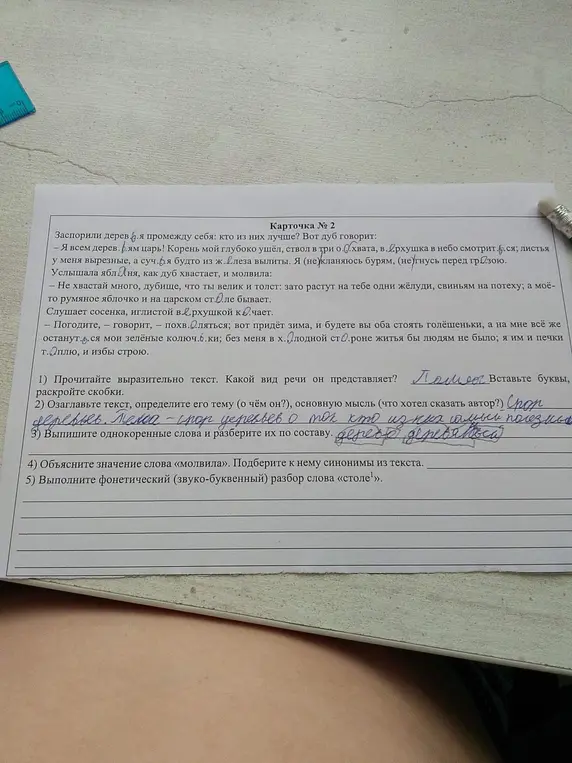 Карточка № 2
Заспорили деревья промежду себя: кто из них лучше? Вот дуб говорит:
– Я всем деревьям царь! Корень мой глубоко ушёл, ствол в три обхвата, верхушка в небо смотрится; листья
у меня вырезные, а сучья будто из железа вылиты. Я (не)кланяюсь бурям, (не)гнусь перед грозою.
Услышала яблоня, как дуб хвастает, и молвила:
– Не хвастай много, дубище, что ты велик и толст: зато растут на тебе одни жёлуди, свиньям на потеху; а моё-
то румяное яблочко и на царском столе бывает.
Слушает сосенка, иглистой верхушкой качает.
– Погодите, – говорит, – похваляться; вот придёт зима, и будете вы оба стоять голёшеньки, а на мне всё же
останутся мои зелёные колючки; без меня в холодной стороне житья бы людям не было; я им и печки
топлю, и избы строю.
1) Прочитайте выразительно текст. Какой вид речи он представляет? Вставьте буквы,
раскройте скобки.
2) Озаглавьте текст, определите его тему (о чём он?), основную мысль (что хотел сказать автор?) Спор
деревьев. Тема – спор деревьев о том кто из них самый
3) Выпишите однокоренные слова и разберите их по составу. дерево
4) Объясните значение слова «молвила». Подберите к нему синонимы из текста.
5) Выполните фонетический (звуко-буквенный) разбор слова «столе¹».